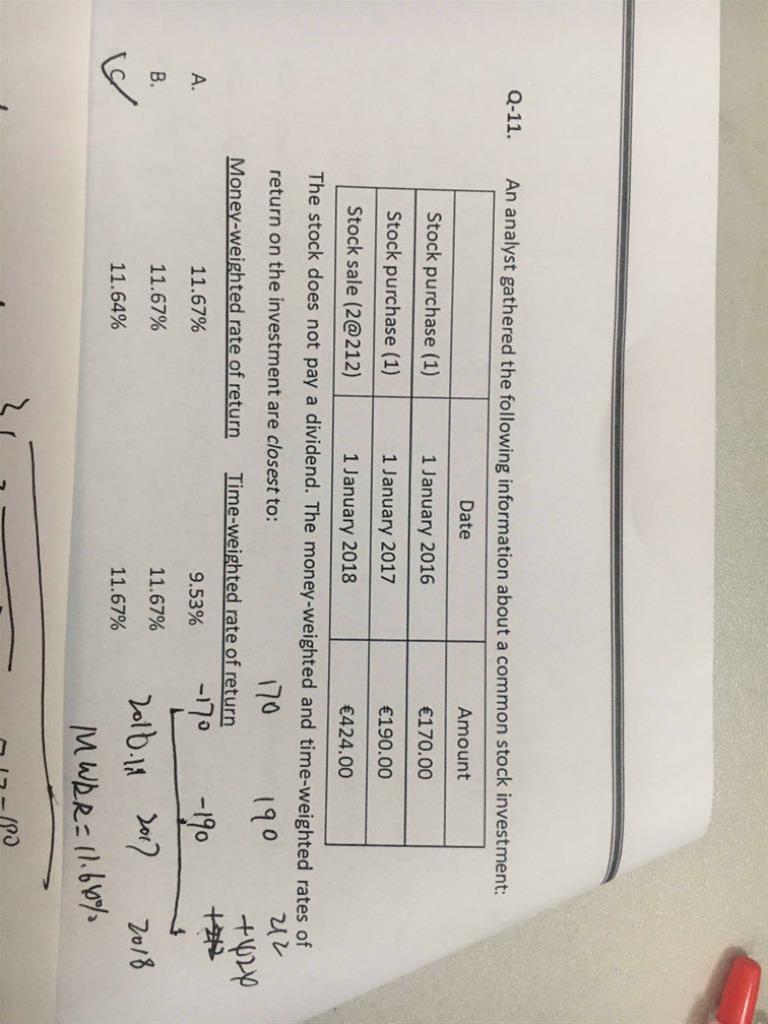 Q-11. An analyst gathered the following information about a common stock investment:
Date Amount
Stock purchase (1) 1 January 2016 €170.00
Stock purchase (1) 1 January 2017 €190.00
Stock sale (2@212) 1 January 2018 €424.00
The stock does not pay a dividend. The money-weighted and time-weighted rates of
return on the investment are closest to:
170 190 212
Money-weighted rate of return Time-weighted rate of return
-170 -190 +424
A. 11.67% 9.53%
B. 11.67% 11.67%
C 11.64% 11.67%
2016.1.1 2017 2018
MWRR = 11.64%